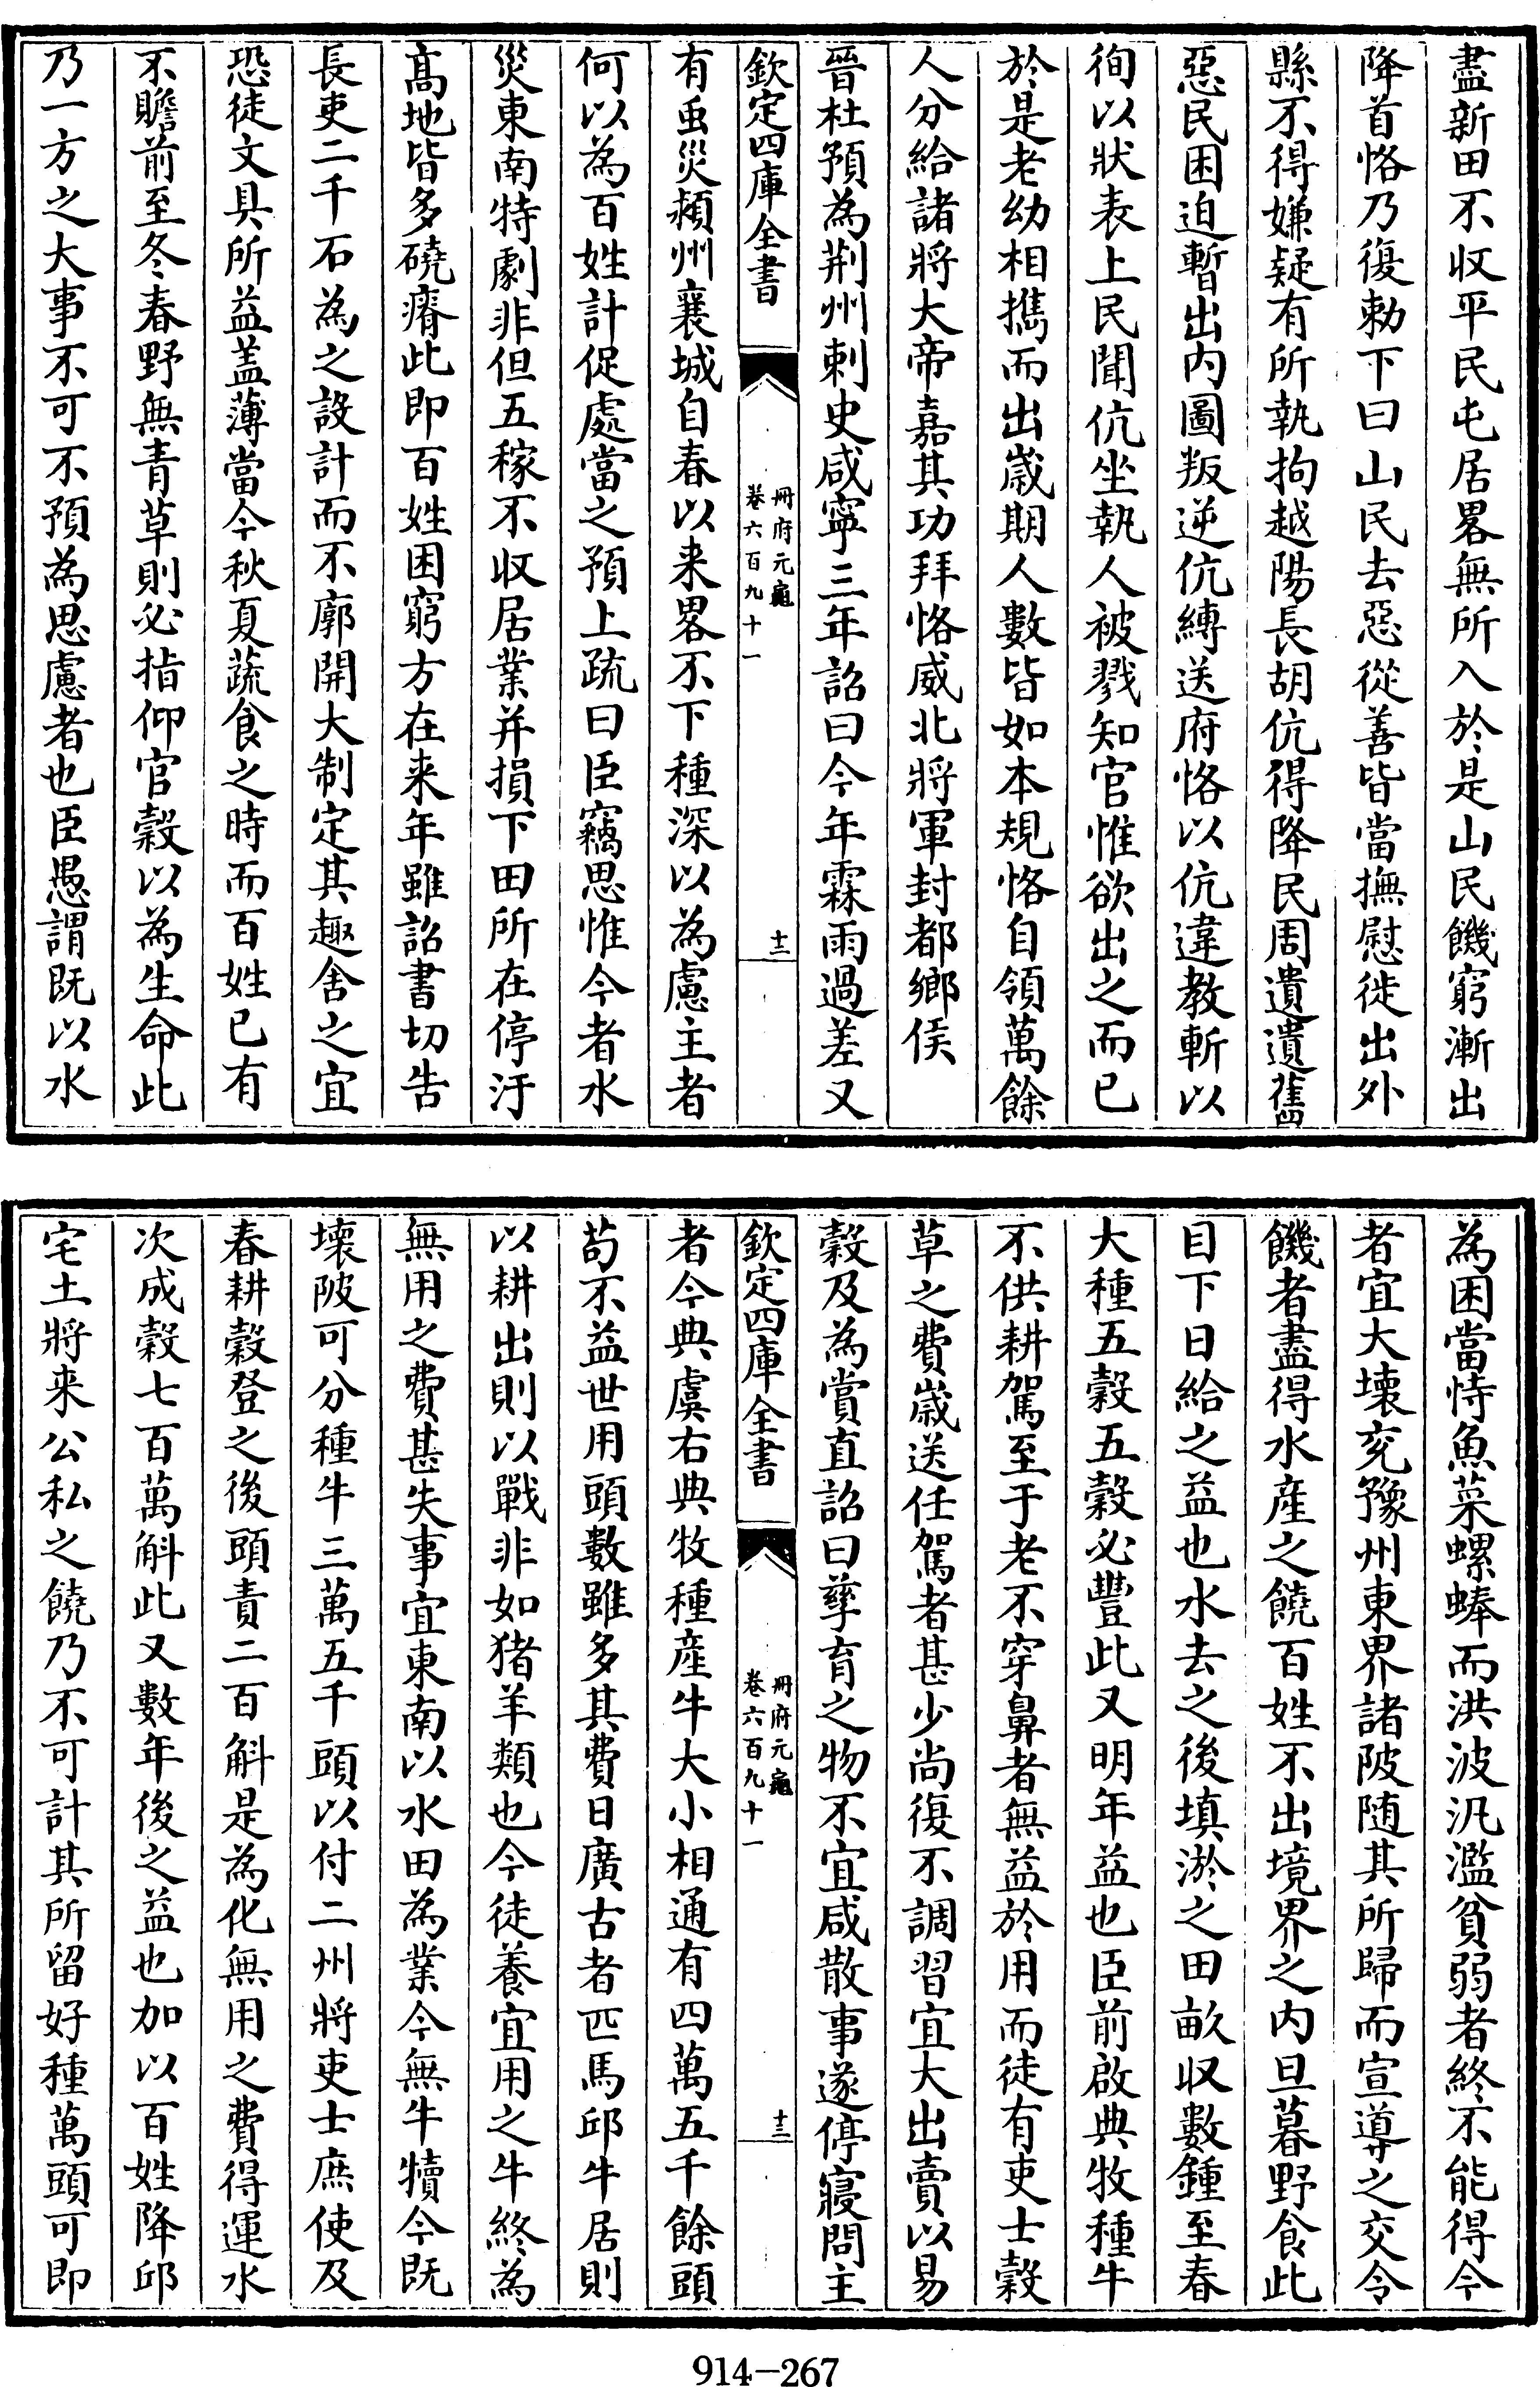 盡新田不収平民屯居畧無所入於是山民饑窮漸出
降首恪乃復勅下曰山民去惡從善皆當撫慰徙出外
縣不得嫌疑有所執拘越陽長胡伉得降民周遺遺舊
惡民困迫暫出内圖叛逆伉縛送府恪以伉違教斬以
徇以狀表上民聞伉坐執人被戮知官惟欲出之而已
於是老幼相携而出歲期人數皆如本規恪自領萬餘
人分給諸將大帝嘉其功拜恪威北將軍封都鄉侯
晉杜預為荆州刺史咸寧三年詔曰今年霖雨過差又
欽定四庫全書
冊府元龜
卷六百九十一
十二
有虫災潁州襄城自春以来畧不下種深以為慮主者
何以為百姓計促處當之預上疏曰臣竊思惟今者水
災東南特劇非但五稼不收居業并損下田所在停汙
髙地皆多磽瘠此即百姓困窮方在来年雖詔書切告
長吏二千石為之設計而不廓開大制定其趣舍之宜
恐徒文具所益盖薄當今秋夏蔬食之時而百姓已有
不贍前至冬春野無青草則必指仰官穀以為生命此
乃一方之大事不可不預為思慮者也臣愚謂既以水
為困當恃魚菜螺蜯而洪波汎濫貧弱者終不能得今
者宜大壊兖豫州東界諸陂随其所歸而宣導之交令
饑者盡得水産之饒百姓不出境界之内旦暮野食此
目下日給之益也水去之後填淤之田畝収數鍾至春
大種五穀五穀必豐此又明年益也臣前啟典牧種牛
不供耕駕至于老不穿鼻者無益於用而徒有吏士穀
草之費歲送任駕者甚少尚復不調習宜大出賣以易
穀及為賞直詔曰孳育之物不宜咸散事遂停寢問主
欽定四庫全書
冊府元龜
卷六百九十一
十三
者今典虞右典牧種産牛大小相通有四萬五千餘頭
苟不益世用頭數雖多其費日廣古者匹馬邱牛居則
以耕出則以戰非如猪羊類也今徒養宜用之牛終為
無用之費甚失事宜東南以水田為業今無牛犢今既
壊陂可分種牛三萬五千頭以付二州將吏士庶使及
春耕穀登之後頭責二百斛是為化無用之費得運水
次成穀七百萬斛此又數年後之益也加以百姓降邱
宅土將来公私之饒乃不可計其所留好種萬頭可即
914-267